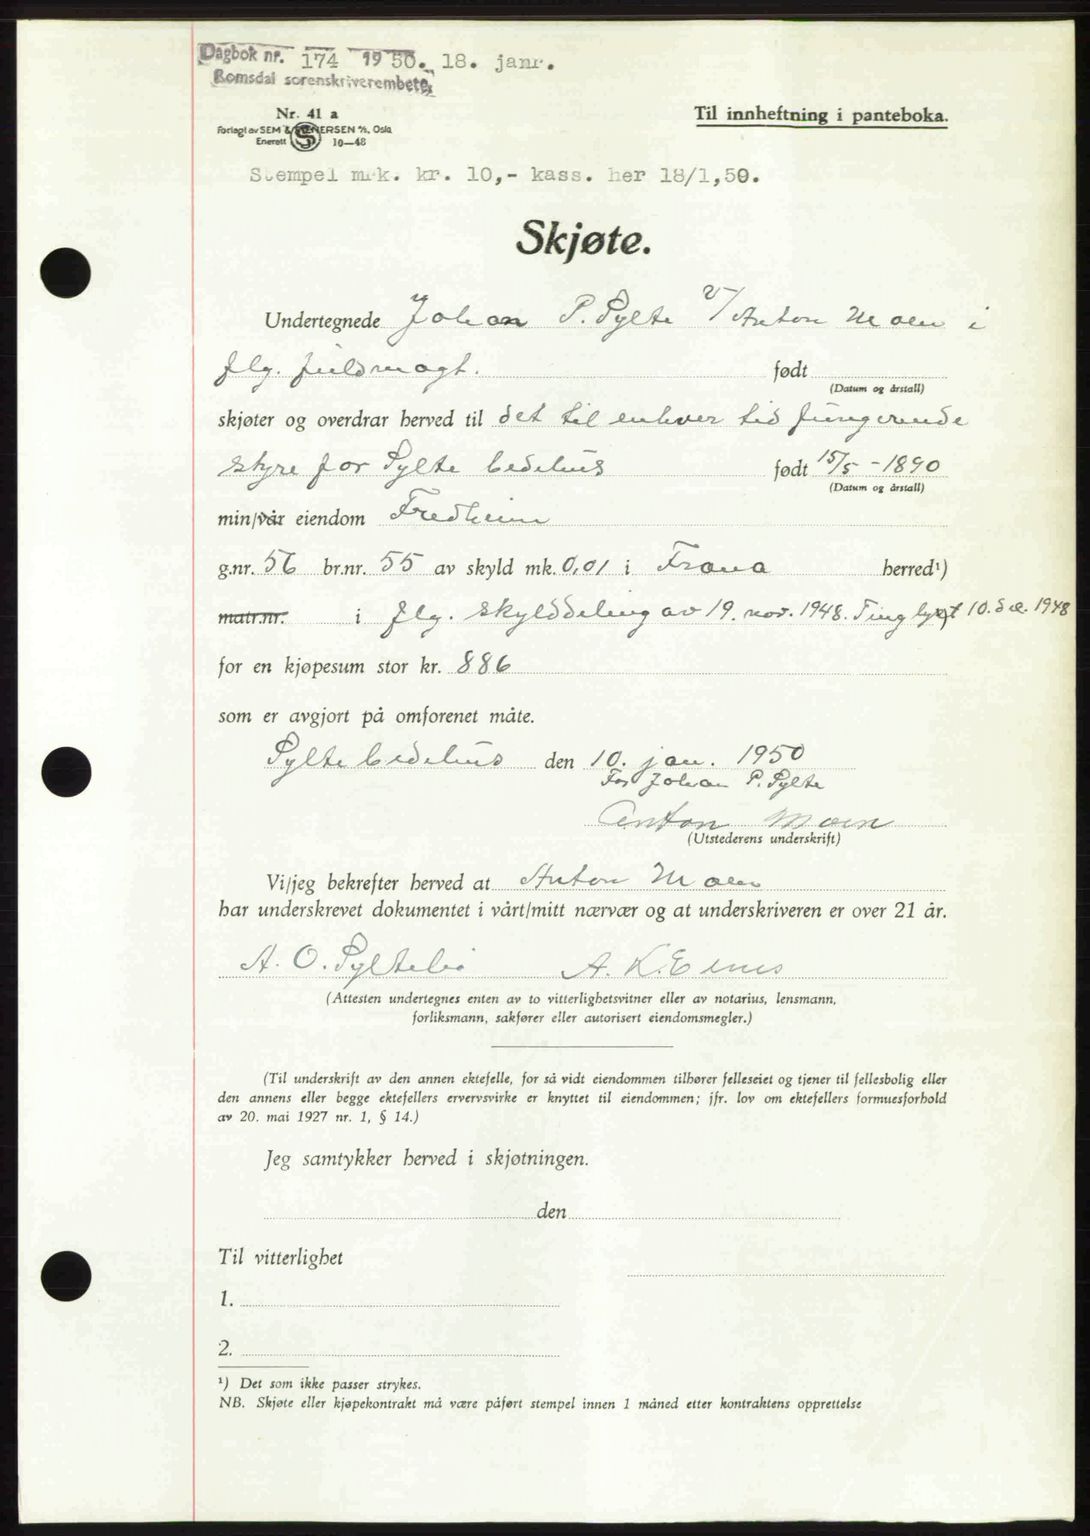 Dagbok nr. 174 1950. 18. janr.
Romsdal sorenskriverembete
Nr. 41 a
Forlagt av SEM & STENERSEN A/S, Oslo
Enerett 10—48
Til innheftning i panteboka.
Stempel mrk. kr. 10,- kass. her 18/1,50.
Skjøte.
Undertegnede Johan P. Sylte v/ Anton Moen i
flg. fuldmagt. født
(Datum og årstall)
skjøter og overdrar herved til det til enhver tid fungerende
styre for Sylte bedehus født 15/5 - 1890
(Datum og årstall)
min/vår eiendom Fredheim
g.nr. 56 br.nr. 55 av skyld mk. 0,01 i Fræna herred¹)
matr.nr. i flg. skylddeling av 19. nov. 1948. Tinglyst 10. des. 1948
for en kjøpesum stor kr. 886
som er avgjort på omforenet måte.
Sylte bedehus den 10. jan. 1950
For Johan P. Sylte
Anton Moen
(Utstederens underskrift)
Vi/jeg bekrefter herved at Anton Moen
har underskrevet dokumentet i vårt/mitt nærvær og at underskriveren er over 21 år.
A. O. Syltelid A. K.
(Attesten undertegnes enten av to vitterlighetsvitner eller av notarius, lensmann,
forliksmann, sakfører eller autorisert eiendomsmegler.)
(Til underskrift av den annen ektefelle, for så vidt eiendommen tilhører felleseiet og tjener til fellesbolig eller
den annens eller begge ektefellers ervervsvirke er knyttet til eiendommen; jfr. lov om ektefellers formuesforhold
av 20. mai 1927 nr. 1, § 14.)
Jeg samtykker herved i skjøtningen.
den
Til vitterlighet
1.
2.
¹) Det som ikke passer strykes.
NB. Skjøte eller kjøpekontrakt må være påført stempel innen 1 måned etter kontraktens opprettelse